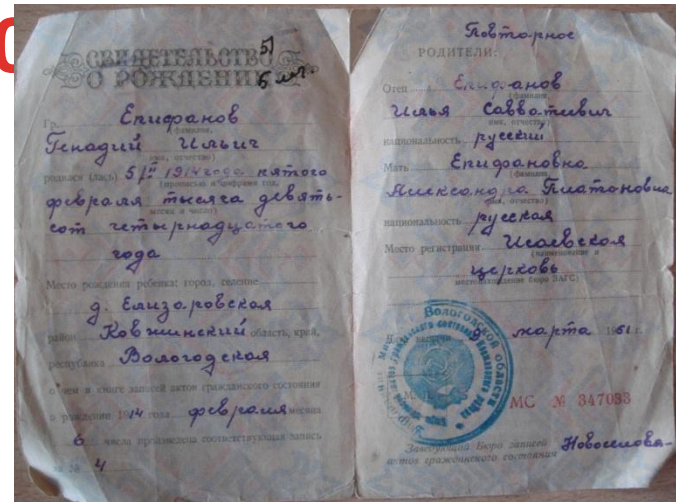 СВИДЕТЕЛЬСТВО
О РОЖДЕНИИ
51
5 лет.
Гр. Епифанов
(фамилия,
Генадий Ильич
имя, отчество)
родился (лась) 5/II 1914 года пятого
(прописью и цифрами год,
февраля тысяча девять-
месяц и число)
сот четырнадцатого
года
Место рождения ребенка: город, селение
д. Елизаровская
район Ковжинский область, край,
республика Вологодская
о чем в книге записей актов гражданского состояния
о рождении 1914 года февраля месяца
6 числа произведена соответствующая запись
за № 4
Повторное
РОДИТЕЛИ:
Отец Епифанов
(фамилия,
Илья Савватиевич
имя, отчество)
национальность русский
Мать Епифановна
(фамилия,
Александра Платоновна
имя, отчество)
национальность русская
Место регистрации Исаевская
(наименование и
церковь
местонахождение бюро ЗАГС)
марта 1951 г.
Вологодской области
МС № 347033
Заведующий Бюро записей
актов гражданского состояния Новоселова